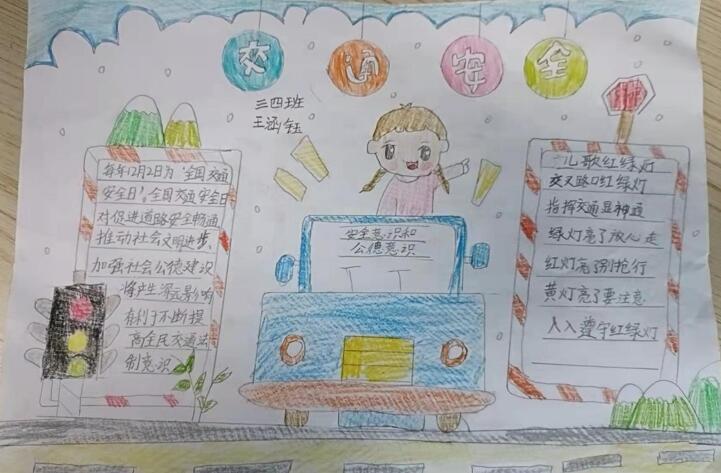 交通安全
三四班
王涵钰
每年12月2日为“全国交通
安全日”。全国交通安全日
对促进道路安全畅通
推动社会文明进步,
加强社会公德建设
将产生深远影响
有利于不断提
高全民交通法
制意识
安全意识和
公德意识
儿歌红绿灯
交叉路口红绿灯
指挥交通显神通
绿灯亮了放心走
红灯亮了别抢行
黄灯亮了要注意
人人遵守红绿灯